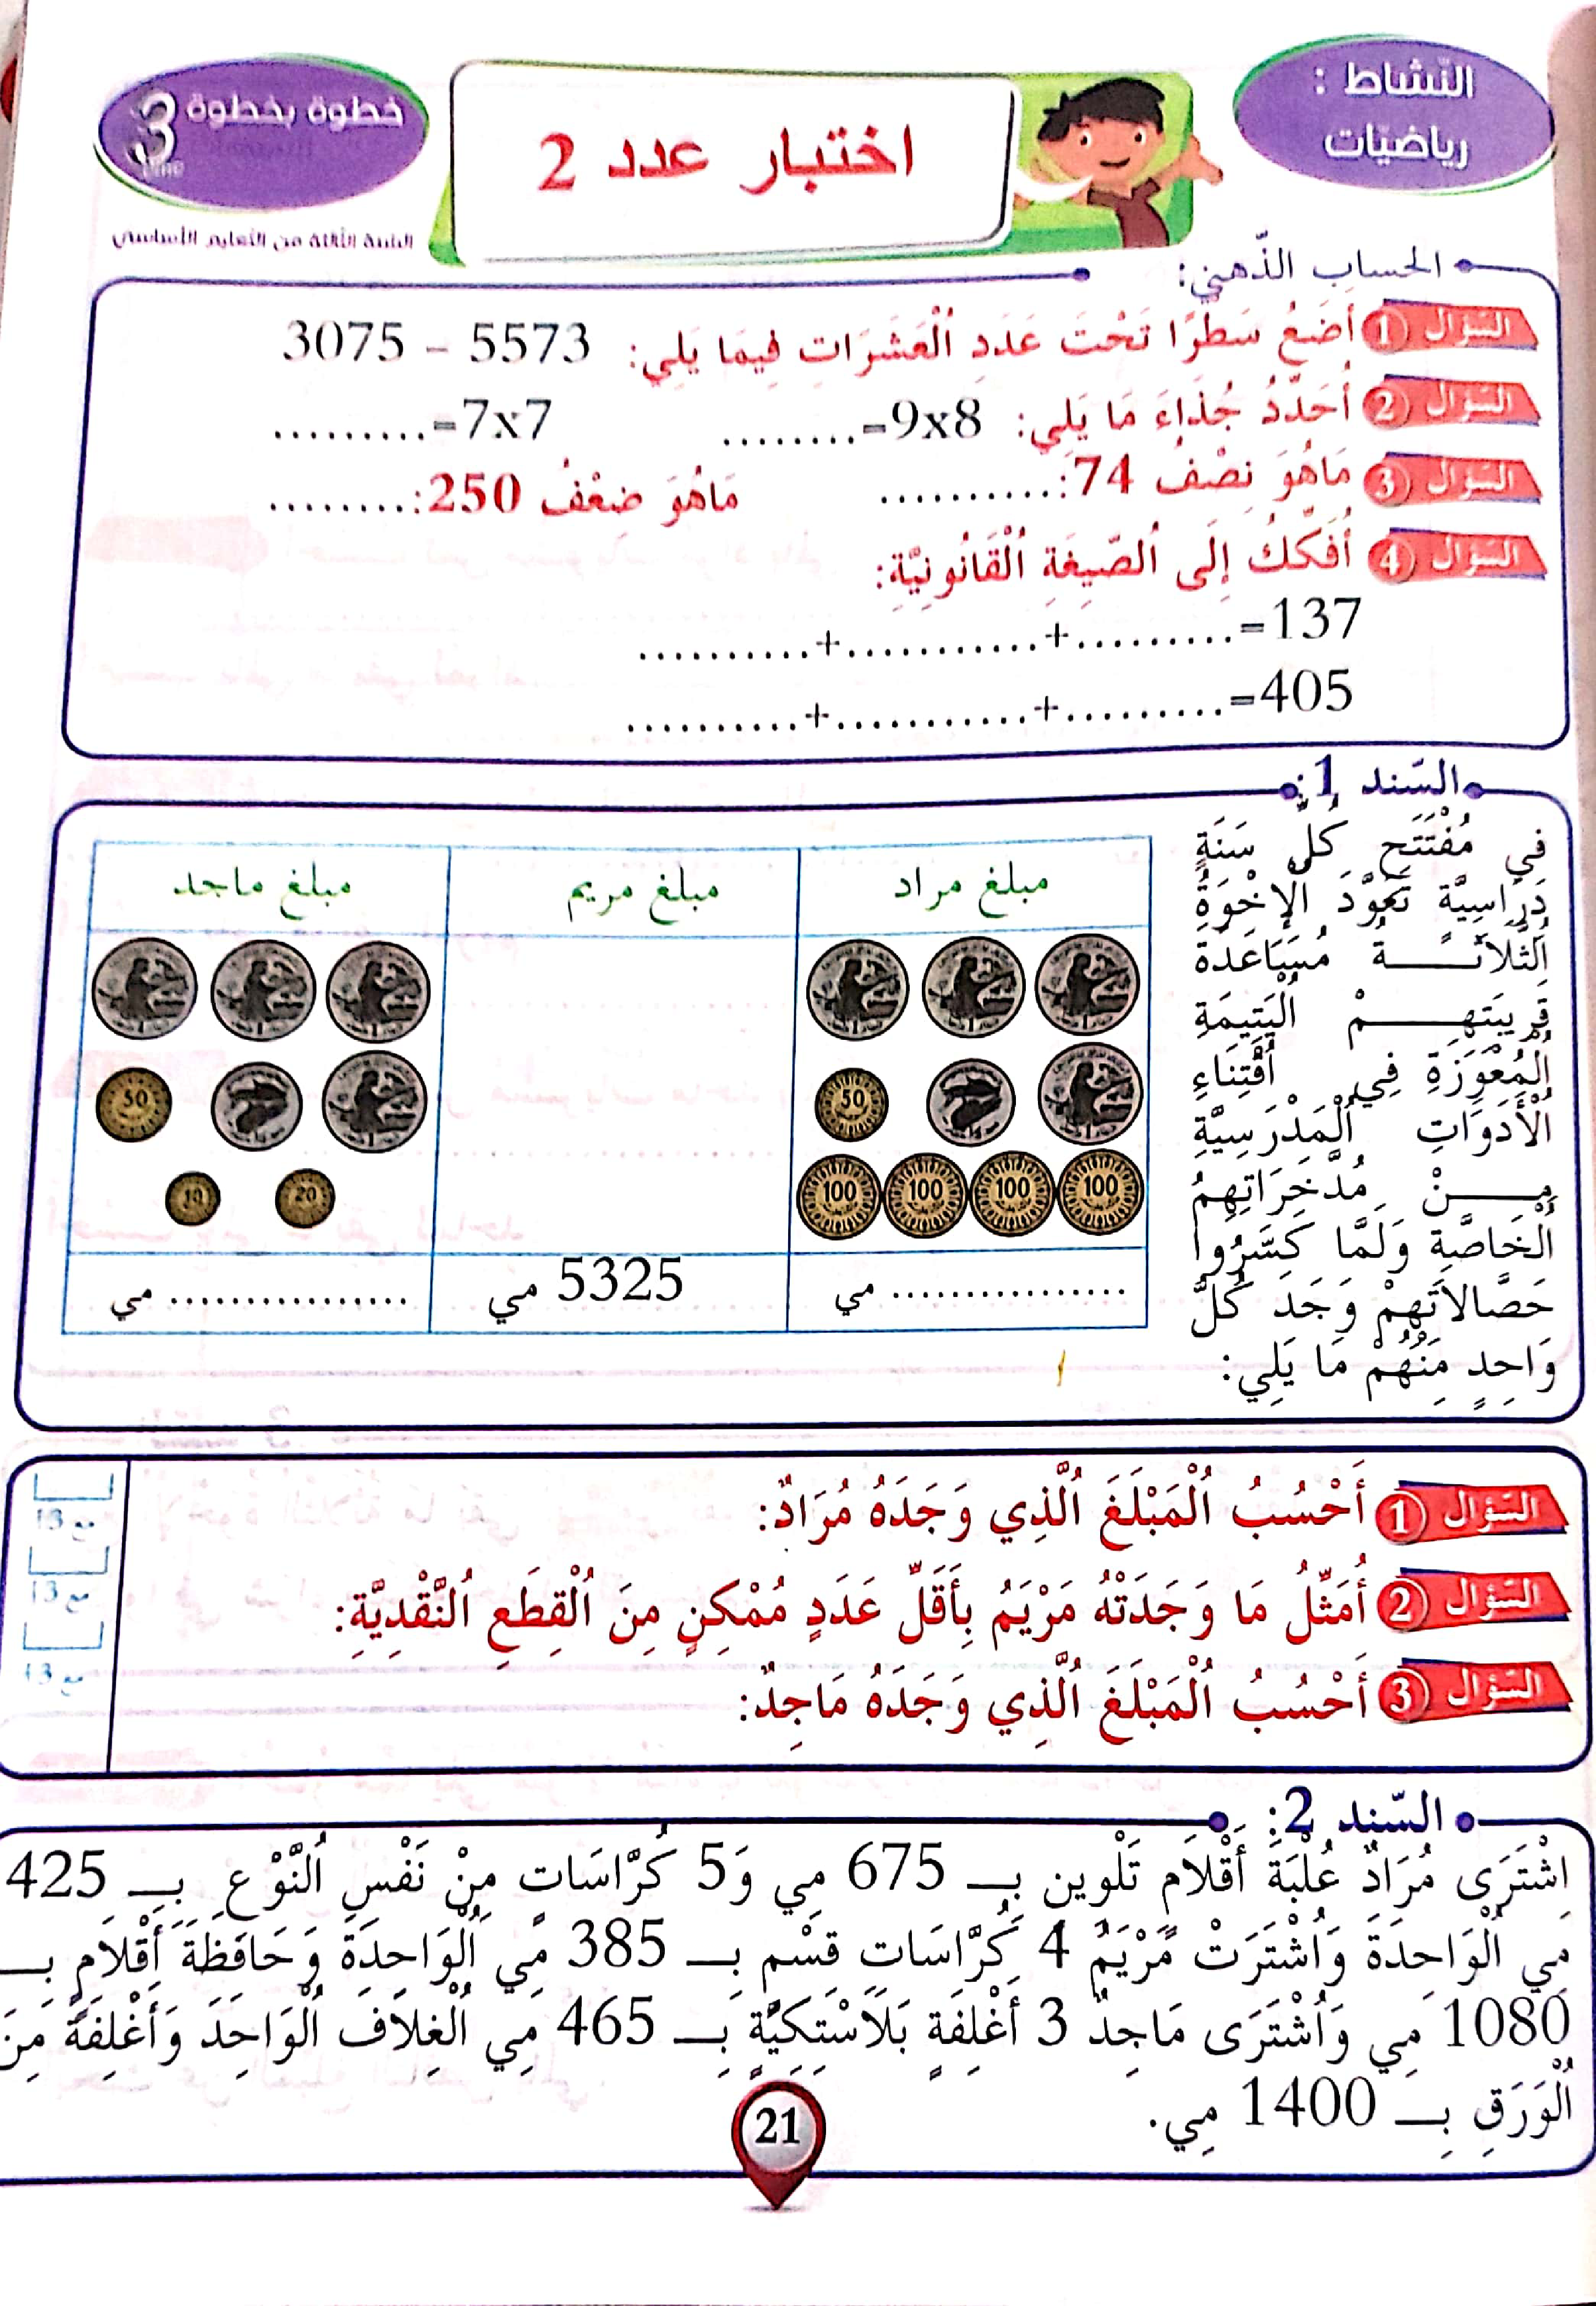 النّشاط :
رياضيّات
اختبار عدد 2
خطوة بخطوة 3
السنة الثالثة من التعليم الأساسي
الحساب الذّهني:
السّؤال 1 أَضَعُ سَطْرًا تَحْتَ عَدَدِ ٱلْعَشَرَاتِ فِيمَا يَلِي: 5573 – 3075
السّؤال 2 أُحَدِّدُ جُذَاءَ مَا يَلِي: 9x8=......... 7x7=..........
السّؤال 3 مَاهُوَ نِصْفُ 74:........... مَاهُوَ ضِعْفُ 250:.........
السّؤال 4 أُفَكِّكُ إِلَى ٱلصِّيغَةِ ٱلْقَانُونِيَّةِ:
137=..........+............+...........
405=..........+............+...........
السّند 1:
فِي مُفْتَتَحِ كُلِّ سَنَةٍ
دِرَاسِيَّةٍ تَعَوَّدَ ٱلْإِخْوَةُ
ٱلثَّلَاثَــــةُ مُسَاعَدَةَ
قَرِيبَتِهِــــمْ ٱلْيَتِيمَةِ
ٱلْمُعْوَزَةِ فِي ٱقْتِنَاءِ
ٱلْأَدَوَاتِ ٱلْمَدْرَسِيَّةِ
مِــــنْ مُدَّخَرَاتِهِمُ
ٱلْخَاصَّةِ وَلَمَّا كَسَّرُوا
حَصَّالَاتَهِمْ وَجَدَ كُلُّ
وَاحِدٍ مِنْهُمْ مَا يَلِي:
مبلغ مراد مبلغ مريم مبلغ ماجد
50 50
100 100 100 100 20 10
................ مي 5325 مي ................ مي
السّؤال 1 أَحْسُبُ ٱلْمَبْلَغَ ٱلَّذِي وَجَدَهُ مُرَادٌ:
مع 13
السّؤال 2 أُمَثِّلُ مَا وَجَدَتْهُ مَرْيَمُ بِأَقَلِّ عَدَدٍ مُمْكِنٍ مِنَ ٱلْقِطَعِ ٱلنَّقْدِيَّةِ:
مع 13
السّؤال 3 أَحْسُبُ ٱلْمَبْلَغَ ٱلَّذِي وَجَدَهُ مَاجِدٌ:
مع 13
السّند 2:
اِشْتَرَى مُرَادٌ عُلْبَةَ أَقْلَامِ تَلْوِين بِــ 675 مِي وَ5 كُرَّاسَاتٍ مِنْ نَفْسِ ٱلنَّوْعِ بِــ 425
مِي ٱلْوَاحِدَةَ وَٱشْتَرَتْ مَرْيَمُ 4 كُرَّاسَاتِ قِسْمٍ بِــ 385 مِي ٱلْوَاحِدَةَ وَحَافِظَةَ أَقْلَامٍ بِــ
1080 مِي وَٱشْتَرَى مَاجِدٌ 3 أَغْلِفَةٍ بَلَاسْتِكِيَّةٍ بِــ 465 مِي ٱلْغِلَافَ ٱلْوَاحِدَ وَأَغْلِفَةً مِنَ
ٱلْوَرَقِ بِــ 1400 مِي.
21